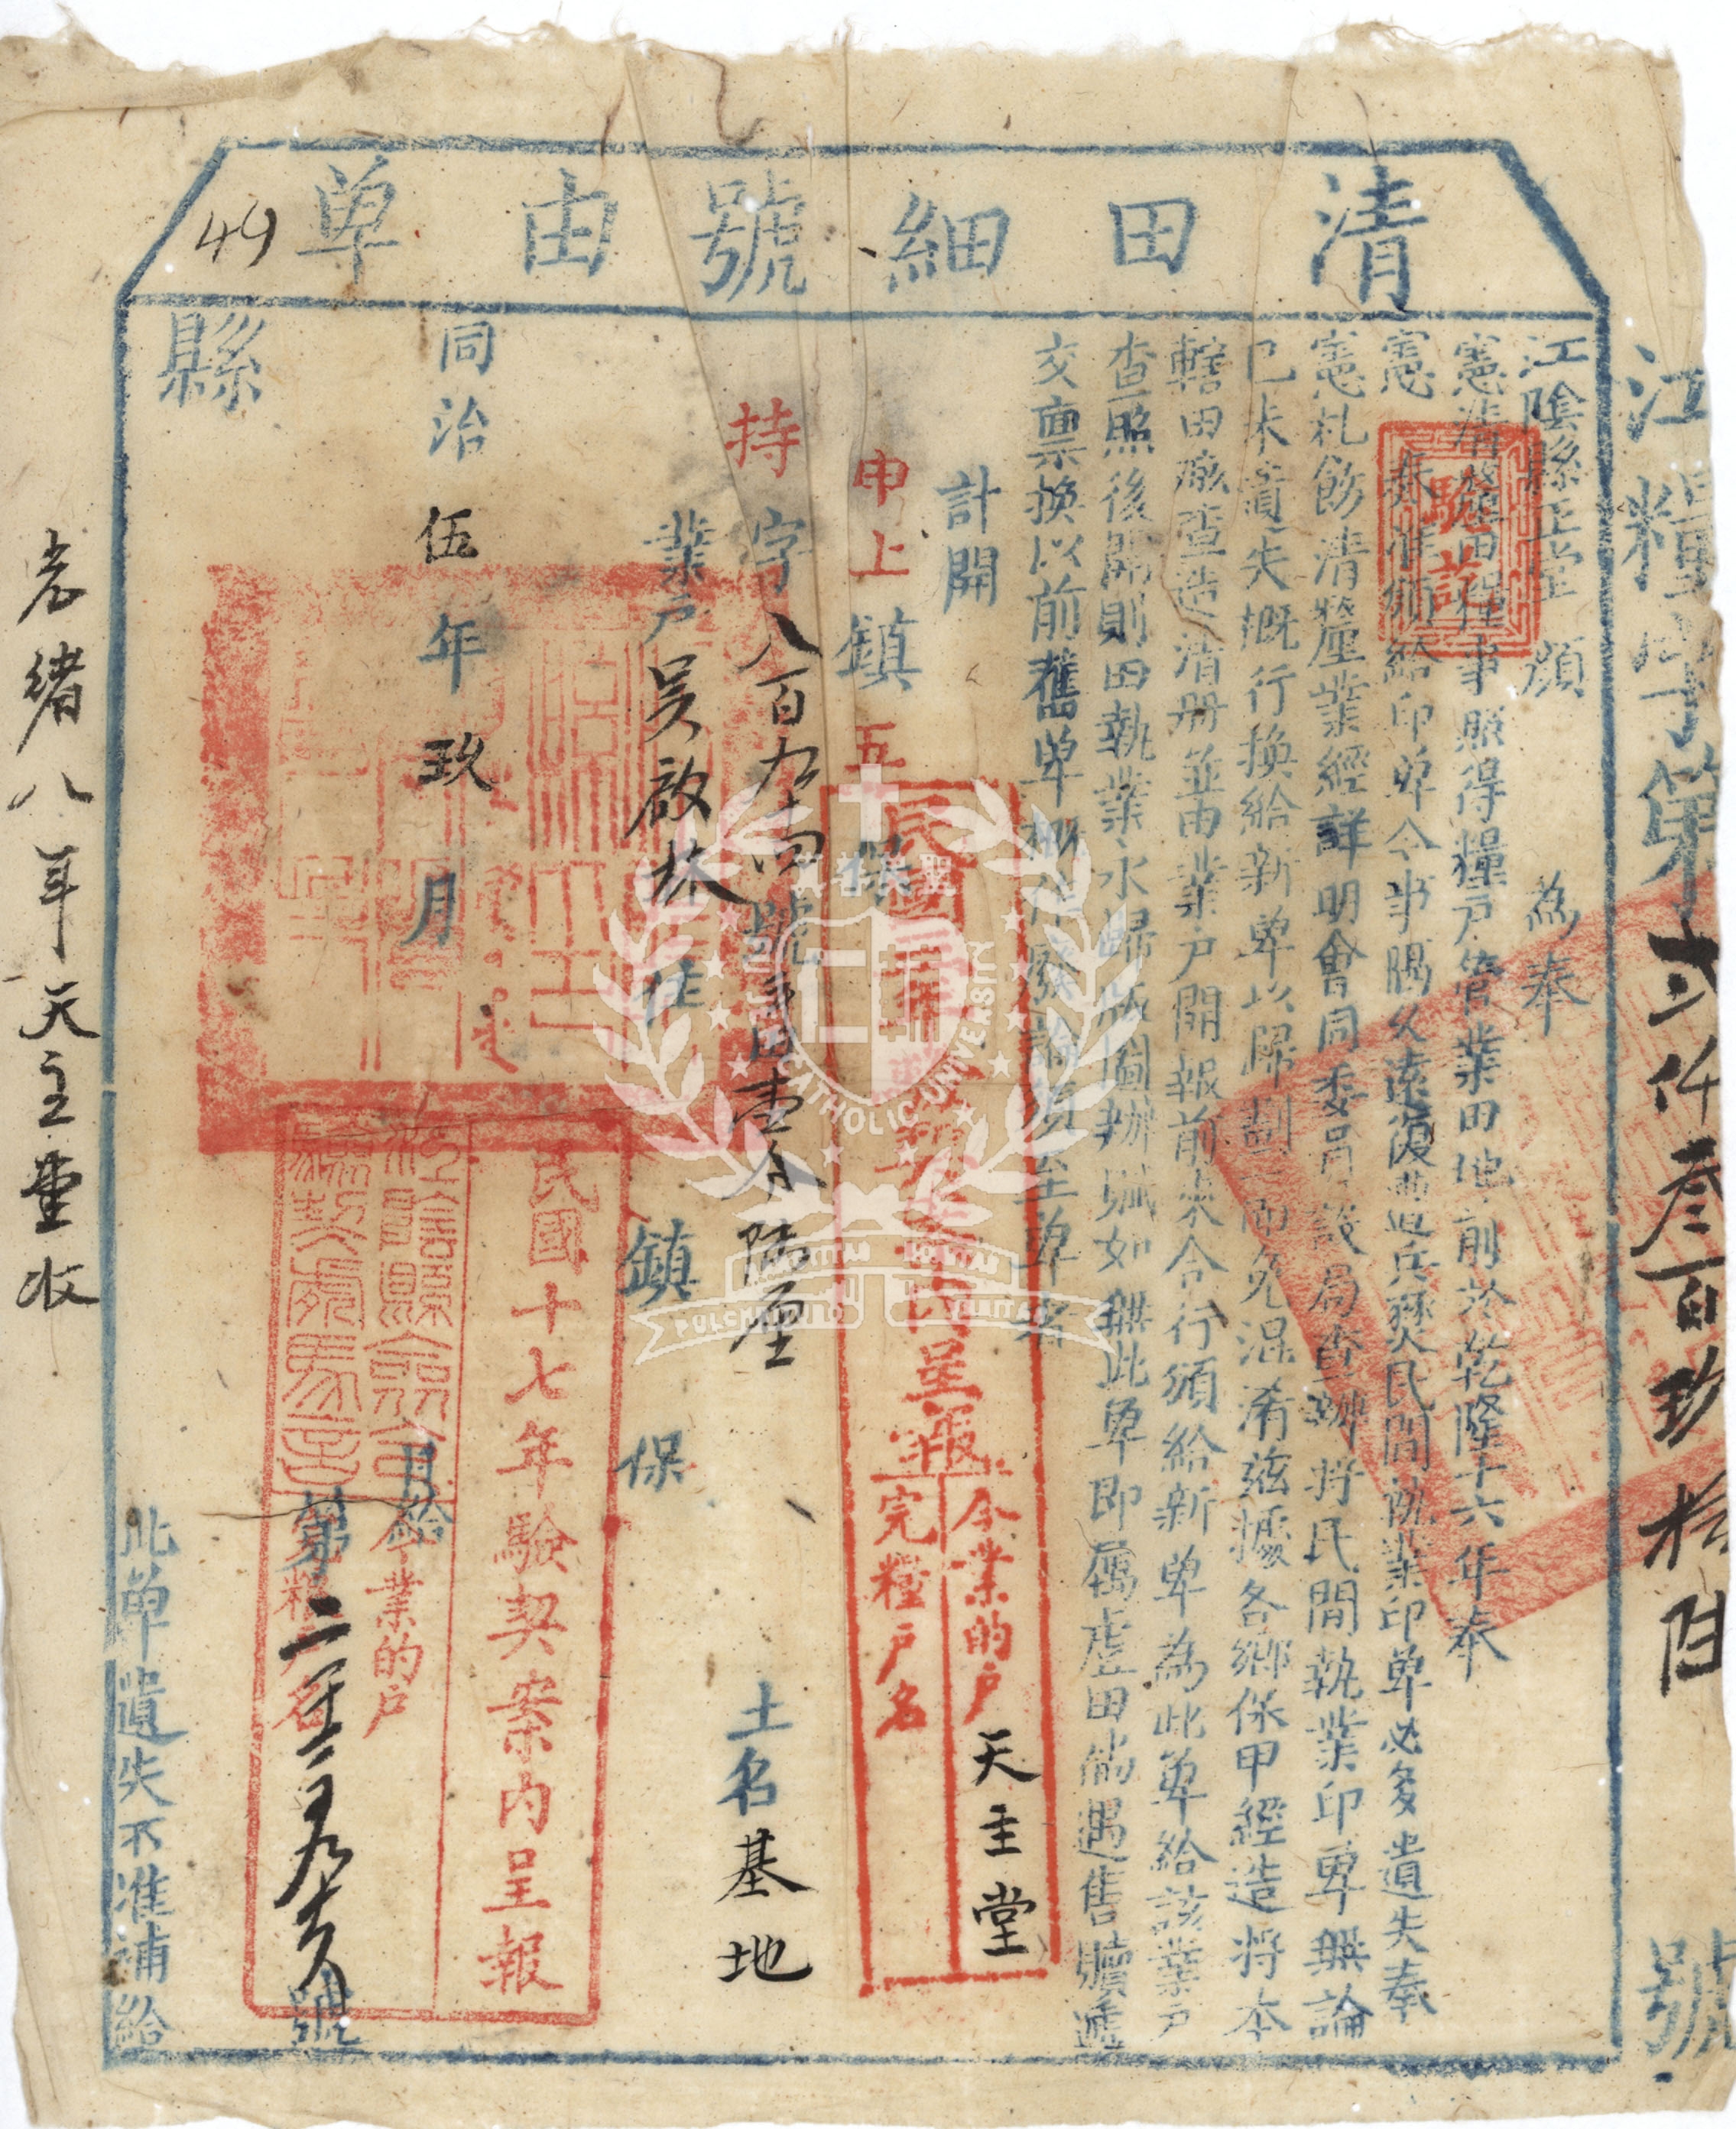 清田細號由单
49
江糧字第弍仟叁百玖拾陸號
江陰縣正堂 顏 為奉
憲清釐田糧事照得糧戶管業田地前於乾隆十六年奉
憲 奉准頒給印单今事隔久遠復遭兵燹民間執業印单必多遺失奉
憲札飭清釐業經詳明會同委員設局查辦將民間執業印单無論
已未遺失概行換給新单以歸劃一而免混淆茲據各鄉保甲經造將本
轄田畝查造清册並由業戶開報前來合行頒給新单為此单給該業戶
查照後開則田執業永歸版圖辦賦如無此单即屬虛田倘遇售贖遞
交稟換以前舊单概作廢論須至单者
計開
申上鎮五保
持字八百九十四號 田壹分陸厘 土名基地
業戶吳啟林 住 鎮 保
同治伍年玖月 日給
縣 第 號
此單遺失不准補給
驗訖
呈報
今業的戶 天主堂
完糧戶名
民國十七年驗契案内呈報
今業的戶
光緒八年天主堂收
CATHOLIC UNIVERSITY